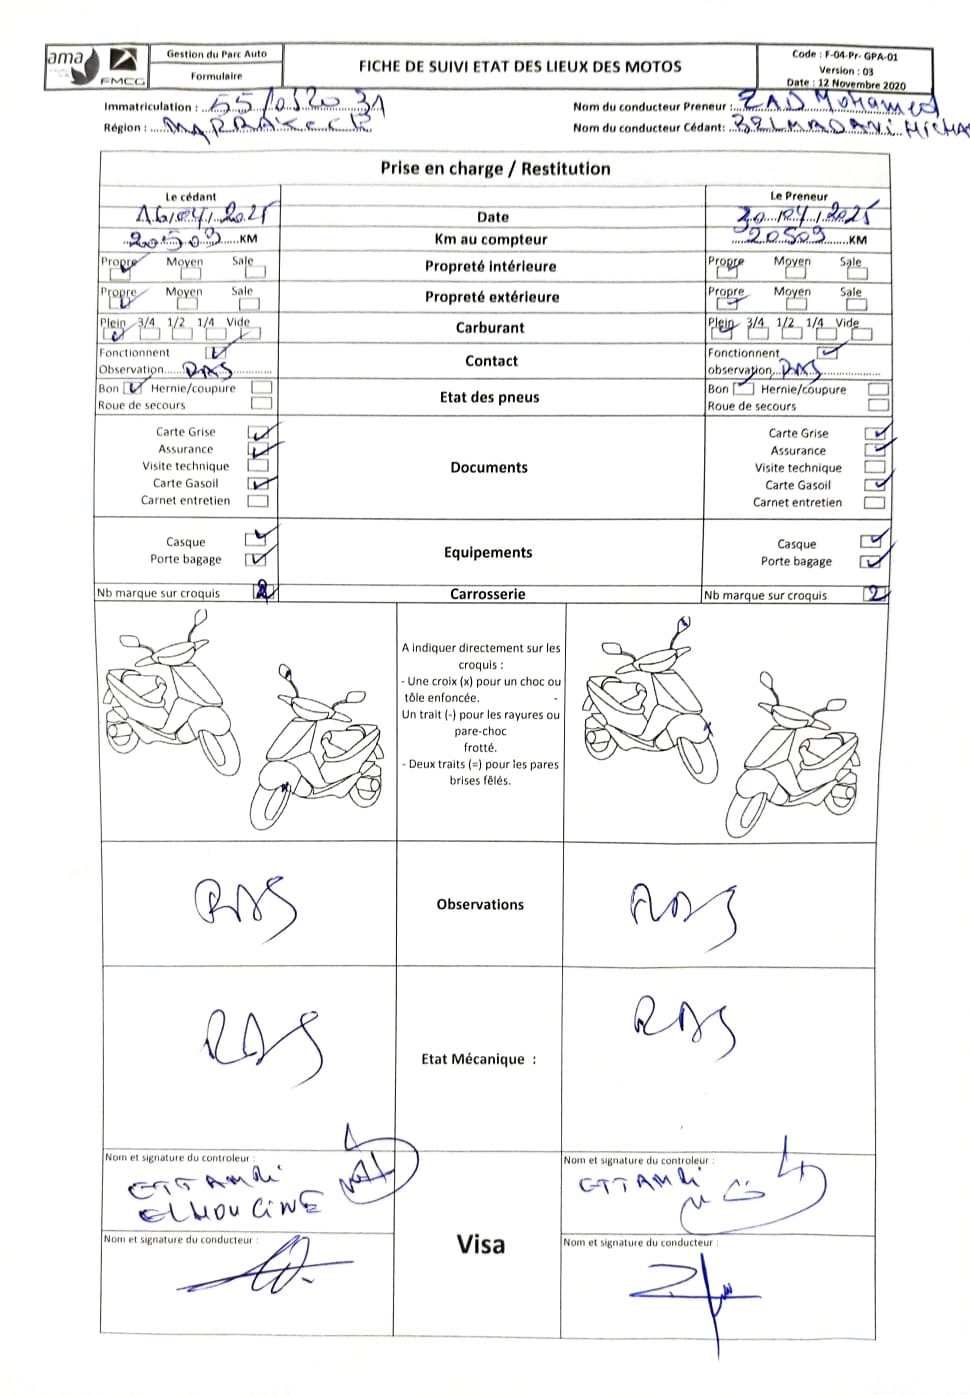 ama
FMCG
Gestion du Parc Auto
Formulaire
FICHE DE SUIVI ETAT DES LIEUX DES MOTOS
Code : F-04-Pr- GPA-01
Version : 03
Date : 12 Novembre 2020
Immatriculation :
Nom du conducteur Preneur : ZAD Mohamed
Région : MARRAKECH
Nom du conducteur Cédant: BELMADANI HICHA
Prise en charge / Restitution
Le cédant Le Preneur
16/04/2025 Date 30/04/2025
20509 KM Km au compteur 20509 KM
Propre Moyen Sale Propreté intérieure Propre Moyen Sale
Propre Moyen Sale Propreté extérieure Propre Moyen Sale
Plein 3/4 1/2 1/4 Vide Carburant Plein 3/4 1/2 1/4 Vide
Fonctionnent Contact Fonctionnent
Observation...... RAS observation... RAS
Bon Hernie/coupure Etat des pneus Bon Hernie/coupure
Roue de secours Roue de secours
Carte Grise Carte Grise
Assurance Assurance
Visite technique Documents Visite technique
Carte Gasoil Carte Gasoil
Carnet entretien Carnet entretien
Casque Equipements Casque
Porte bagage Porte bagage
Nb marque sur croquis 2 Carrosserie Nb marque sur croquis 2
A indiquer directement sur les
croquis :
- Une croix (x) pour un choc ou
tôle enfoncée. -
Un trait (-) pour les rayures ou
pare-choc
frotté.
- Deux traits (=) pour les pares
brises fêlés.
RAS Observations RAS
RAS Etat Mécanique : RAS
Nom et signature du controleur : Nom et signature du controleur :
ETTAMRI ETTAMRI
ELHOUCINE
Visa
Nom et signature du conducteur : Nom et signature du conducteur :